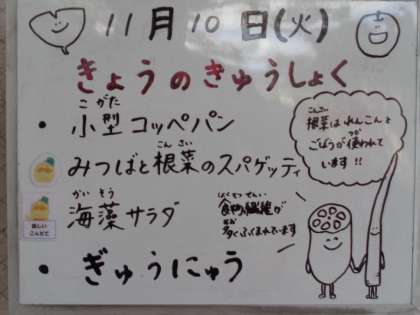 11月10日(火)
きょうのきゅうしょく
こがた
・小型コッペパン
こんさい
・みつばと根菜のスパゲッティ
かいそう
・海藻サラダ
・ぎゅうにゅう
こんさい
根菜はれんこんと
つか
ごぼうが使われて
います!!
しょくもつせんい
食物繊維が
多くふくまれています